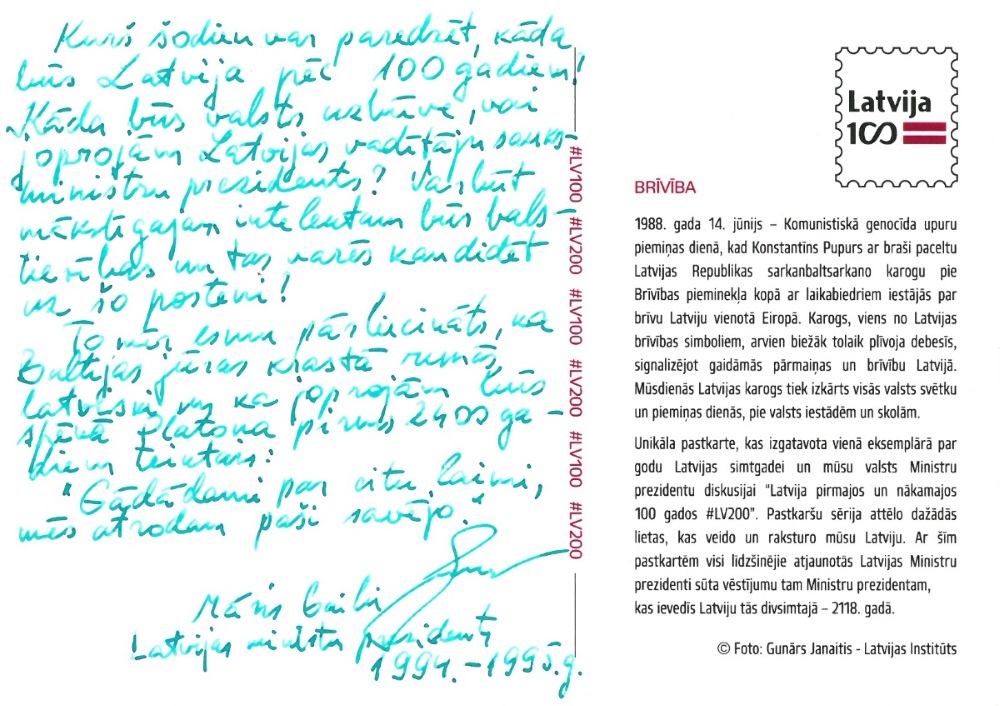 Kurš šodien var paredzēt, kāda
būs Latvija pēc 100 gadiem!
Kāda būs valsts uzbūve, vai
joprojām Latvijas vadītāju sauks
ministru prezidents? Varbūt
mākslīgajam intelektam būs bals-
tiesības un tas varēs kandidēt
uz šo posteni!
Tomēr esmu pārliecināts, ka
Baltijas jūras krastā runās
latviski un ka joprojām būs
spēkā Platona pirms 2400 ga-
diem teiktais:
"Gādādami par citu laimi,
mēs atrodam paši savējo."
Māris Gailis
Latvijas ministru prezidents
1994.-1995.g.
#LV100 #LV200 #LV100 #LV200 #LV100 #LV200
Latvija
100
BRĪVĪBA
1988. gada 14. jūnijs – Komunistiskā genocīda upuru
piemiņas dienā, kad Konstantīns Pupurs ar braši paceltu
Latvijas Republikas sarkanbaltsarkano karogu pie
Brīvības pieminekļa kopā ar laikabiedriem iestājās par
brīvu Latviju vienotā Eiropā. Karogs, viens no Latvijas
brīvības simboliem, arvien biežāk tolaik plīvoja debesīs,
signalizējot gaidāmās pārmaiņas un brīvību Latvijā.
Mūsdienās Latvijas karogs tiek izkārts visās valsts svētku
un piemiņas dienās, pie valsts iestādēm un skolām.
Unikāla pastkarte, kas izgatavota vienā eksemplārā par
godu Latvijas simtgadei un mūsu valsts Ministru
prezidentu diskusijai "Latvija pirmajos un nākamajos
100 gados #LV200". Pastkaršu sērija attēlo dažādās
lietas, kas veido un raksturo mūsu Latviju. Ar šīm
pastkartēm visi līdzšinējie atjaunotās Latvijas Ministru
prezidenti sūta vēstījumu tam Ministru prezidentam,
kas ievedīs Latviju tās divsimtajā – 2118. gadā.
© Foto: Gunārs Janaitis - Latvijas Institūts